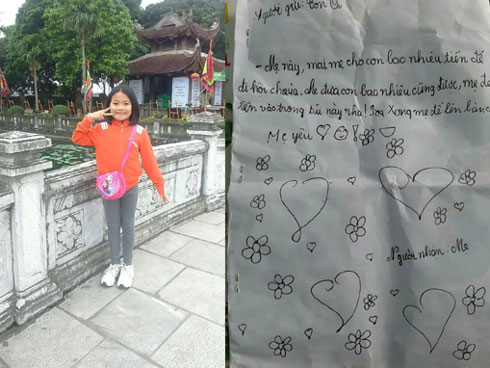 Người gửi: Con
- Mẹ này, mai mẹ cho con bao nhiêu tiền để
đi hội chợ vậy. Mẹ đưa con bao nhiêu cũng được, mẹ để
tiền vào trong túi này nha! Soạ Xong mẹ để lên bàn
Mẹ yêu
Người nhận: Mẹ